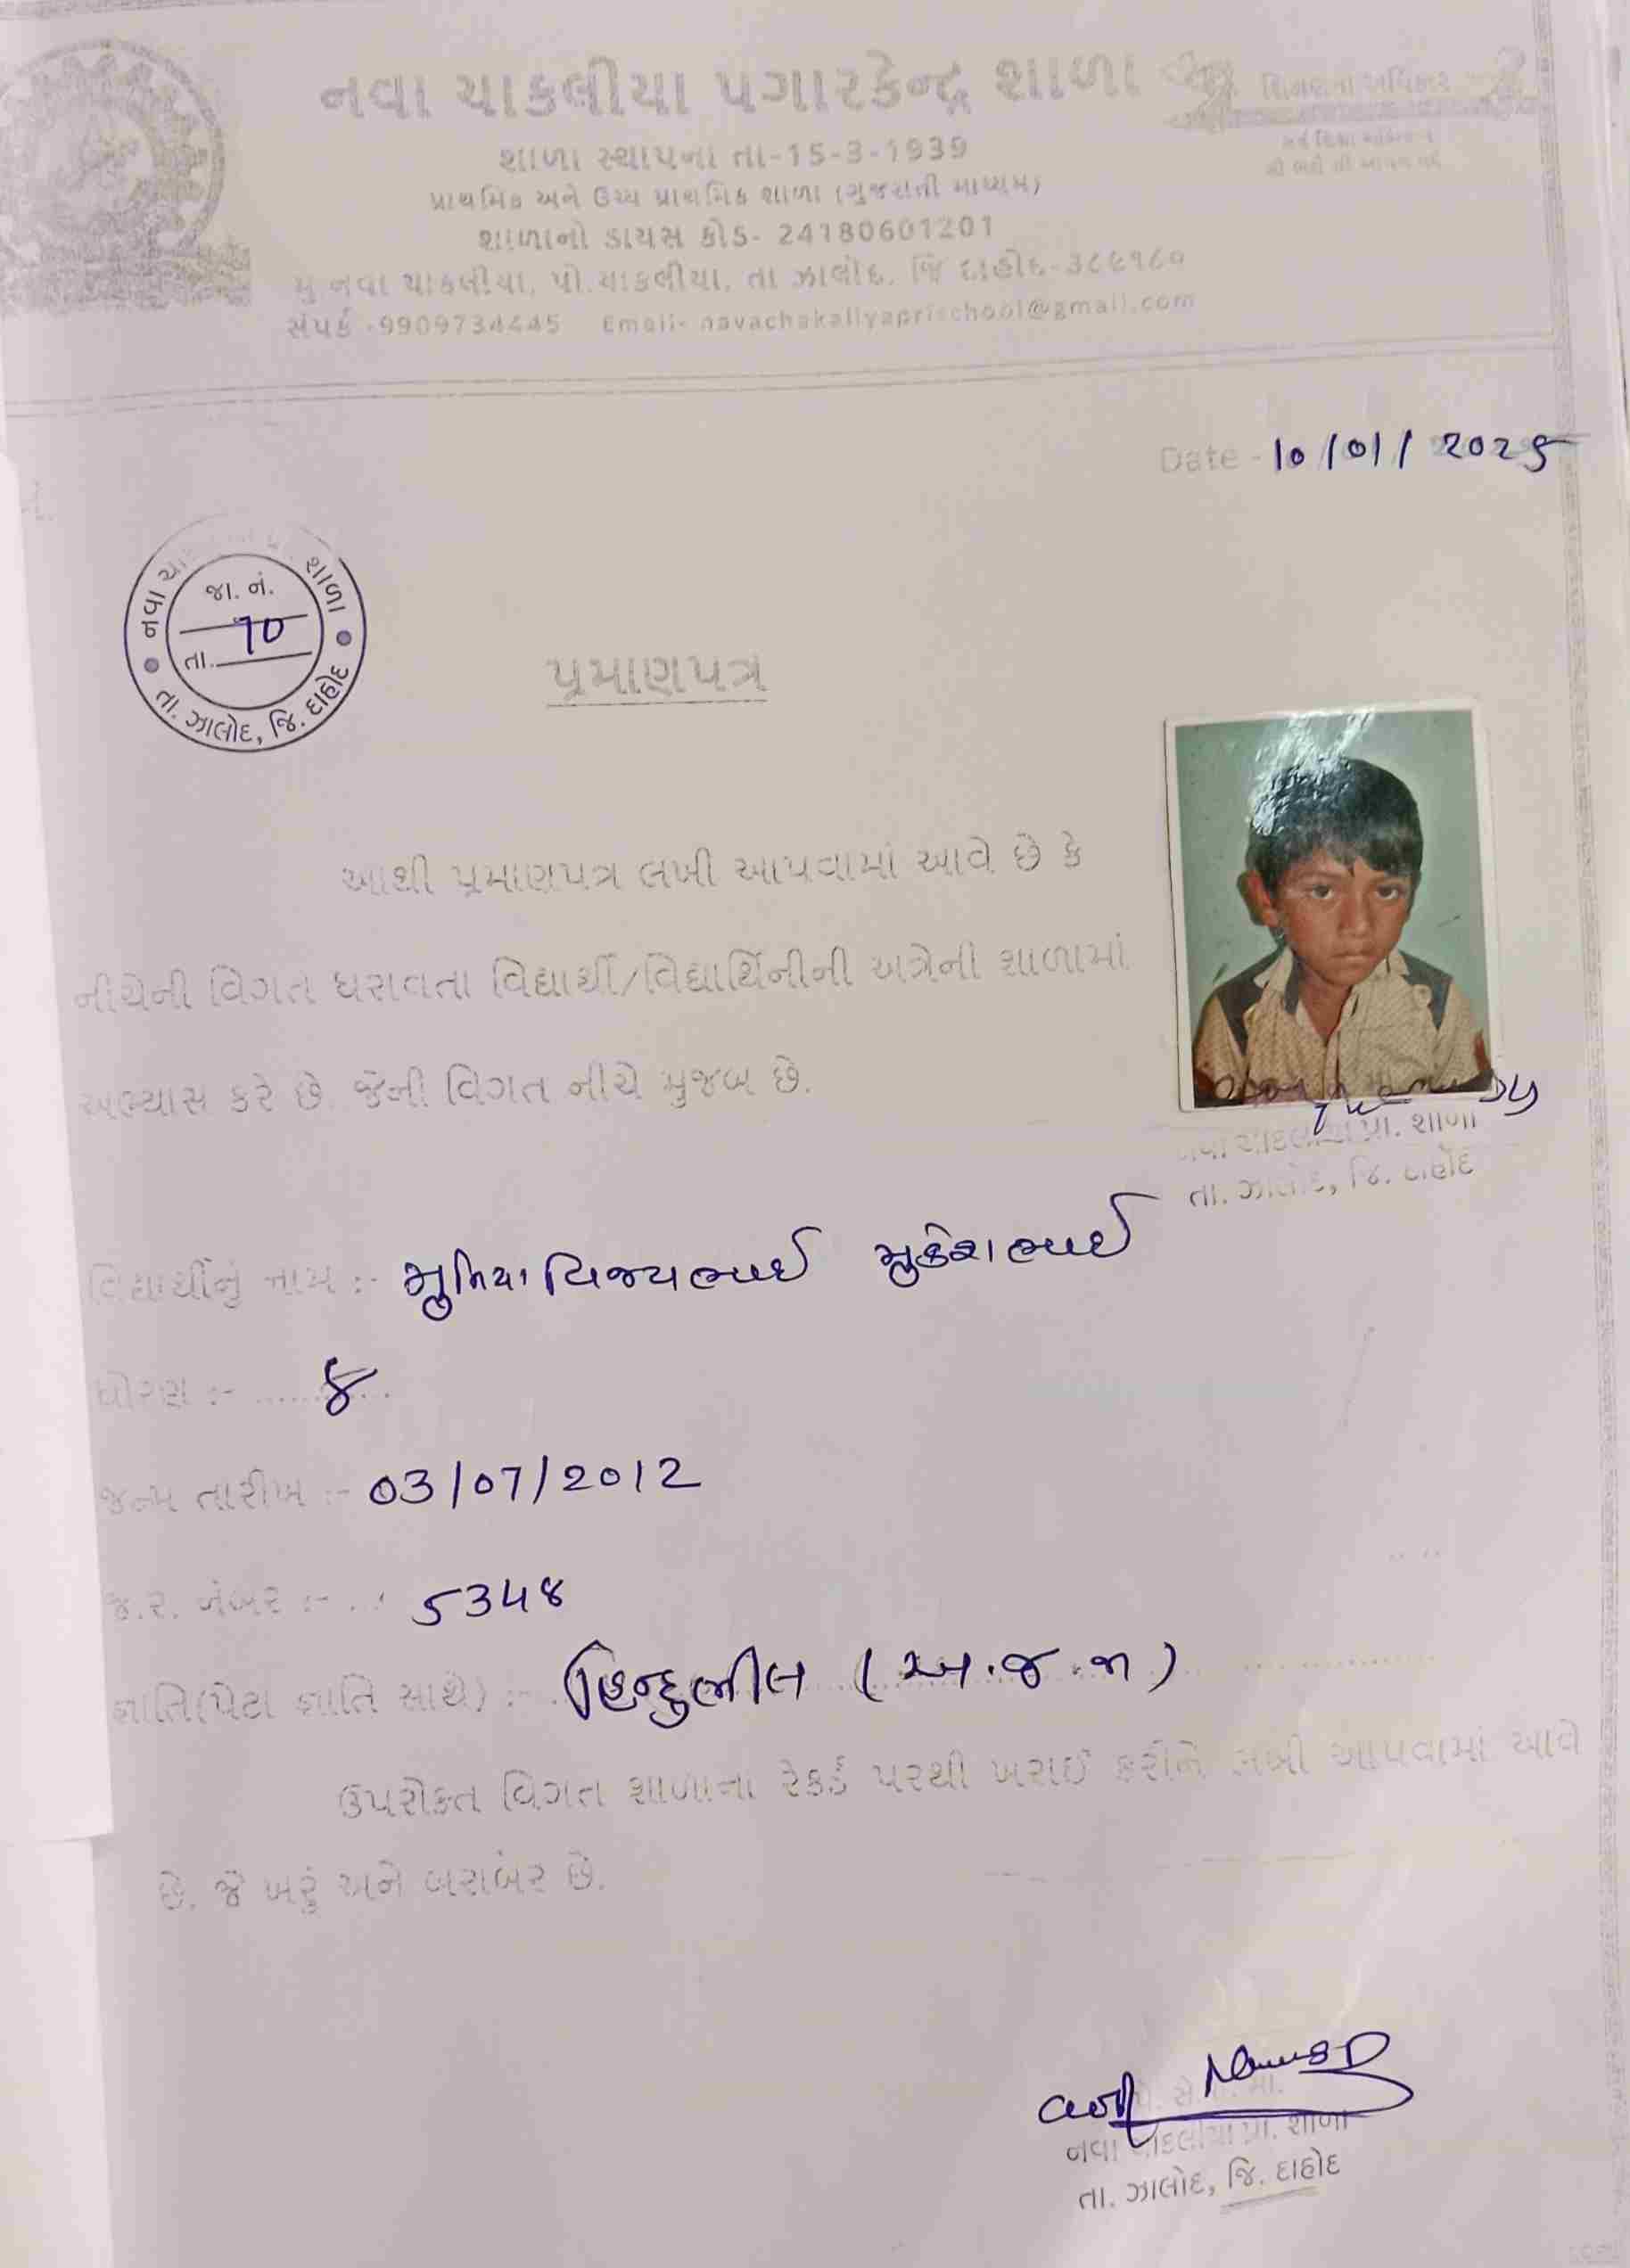 નવા ચાકલીયા પગારકેન્દ્ર શાળા
શિક્ષણનો અધિકાર
સર્વ શિક્ષા અભિયાન
શાળા સ્થાપના તા-15-3-1939
પ્રાથમિક અને ઉચ્ચ પ્રાથમિક શાળા (ગુજરાતી માધ્યમ)
શાળાનો ડાયસ કોડ- 24180601201
મુ નવા ચાકલીયા, પો.ચાકલીયા, તા ઝાલોદ, જિ દાહોદ-૩૮૯૧૮૦
સંપર્ક -9909734445 Email- navachakaliyaprischool@gmail.com
Date - 10/01/2025
નવા શાળા
જા. નં.
10
તા.
તા. ઝાલોદ, જિ. દાહોદ
પ્રમાણપત્ર
આથી પ્રમાણપત્ર લખી આપવામાં આવે છે કે
નીચેની વિગત ધરાવતા વિદ્યાર્થી/વિદ્યાર્થિનીની અત્રેની શાળામાં
અભ્યાસ કરે છે. જેની વિગત નીચે મુજબ છે.
નવા ચાકલીયા પ્રા. શાળા
તા. ઝાલોદ, જિ. દાહોદ
વિદ્યાર્થીનું નામ :- મુનિયા વિજયભાઈ મુકેશભાઈ
ધોરણ :- ૪
જન્મ તારીખ :- 03/07/2012
જ.ર. નંબર :- 534૪
જ્ઞાતિ(પેટા જ્ઞાતિ સાથે) :- હિન્દુભીલ (અ.જ.જા)
ઉપરોક્ત વિગત શાળાના રેકર્ડ પરથી ખરાઈ કરીને લખી આપવામાં આવે
છે. જે ખરું અને બરાબર છે.
નવા ચાકલીયા પ્રા. શાળા
તા. ઝાલોદ, જિ. દાહોદ